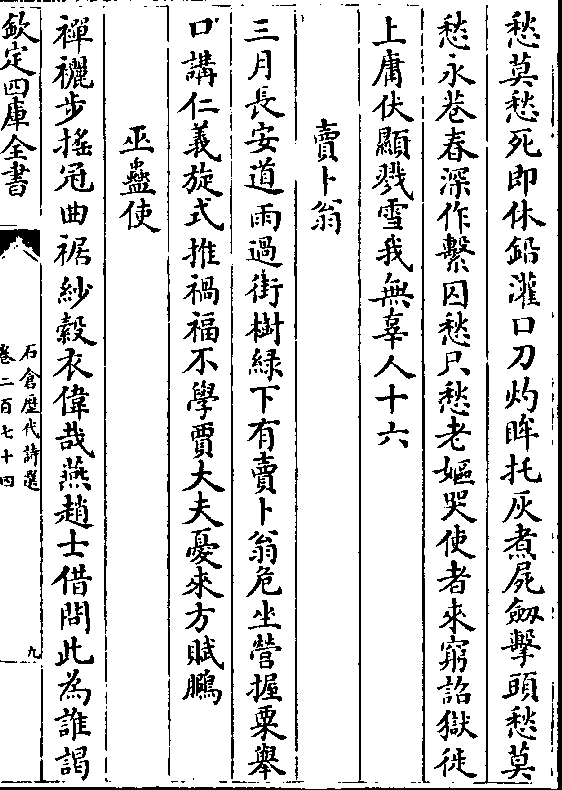 愁莫愁死即休鉛灌口刀灼眸托灰煮屍劔擊頭愁莫
愁永巷春深作繫囚愁只愁老嫗哭使者來窮詔獄徙
上庸伏顯戮雪我無辜人十六
賣卜翁
三月長安道雨過街樹緑下有賣卜翁危坐營握粟舉
口講仁義旋式推禍福不學賈大夫憂來方賦鵩
巫蠱使
襌襹步摇冠曲裾紗縠衣偉哉燕趙士借問此為誰謁
欽定四庫全書
石倉歴代詩選
卷二百七十四
九